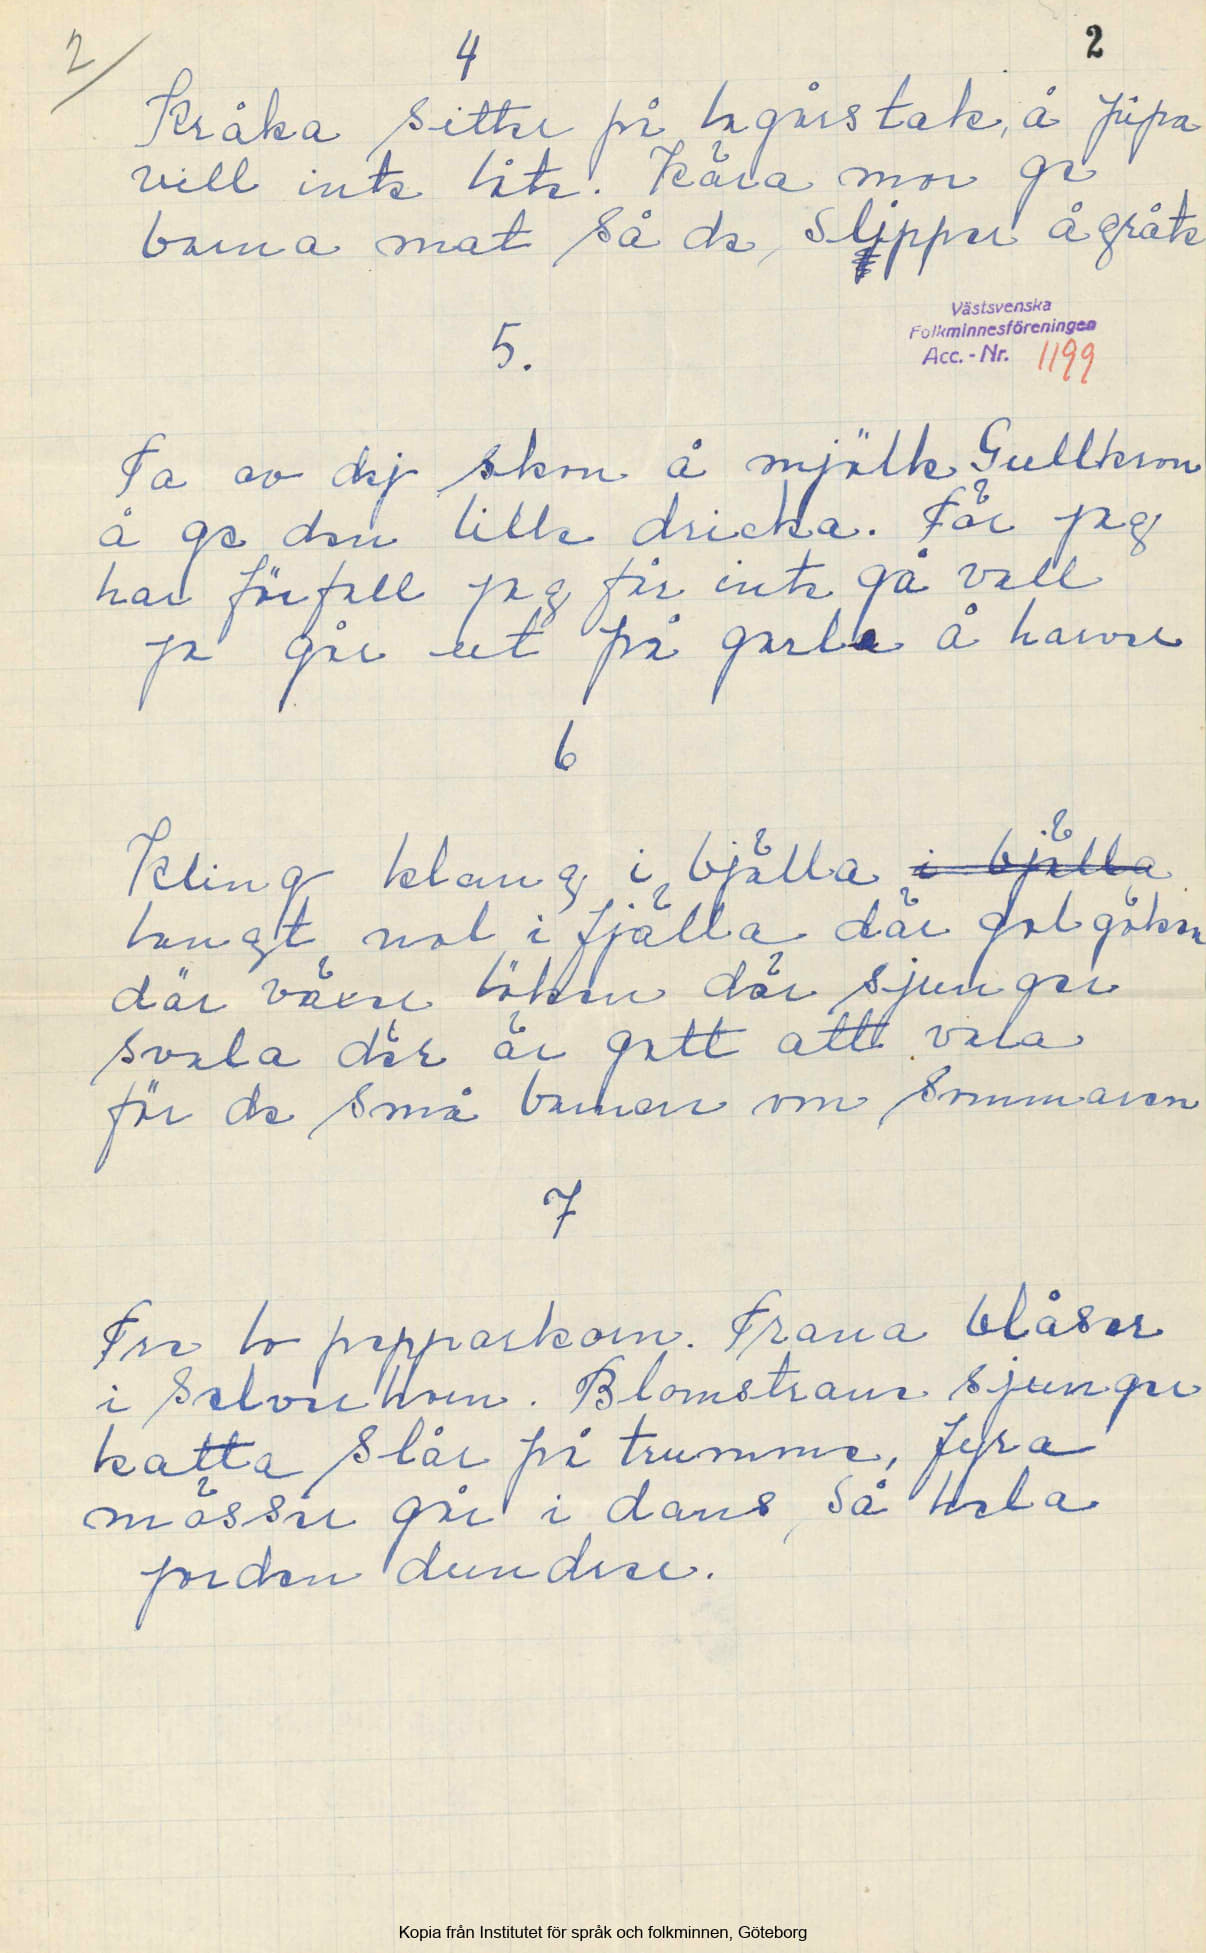 2/
4
2
Kråka sitter på lagårstak, å pipa
vill inte låte. Kära mor ge
barna mat så de slipper å gråte
5.
Västsvenska
Folkminnesföreningen
Acc. - Nr. 1199
Ta av dej skon å mjölk Gullkron
å ge den lille dricka. För jag
har förfall jag får inte gå vall
ja går ut på garla å harver
6
Kling klang i bjälla i bjälla
langt nol i fjälla där gol göken
där växer löken där sjunger
svala där är gott att vala
för de små barnen om sommaren
7
Tre lo pepparkorn. Trana blåser
i selverhorn. Blomstrane sjunger
katta slår på trumme, fyra
mösser går i dans, så hela
jorden dundrer.
Kopia från Institutet för språk och folkminnen, Göteborg